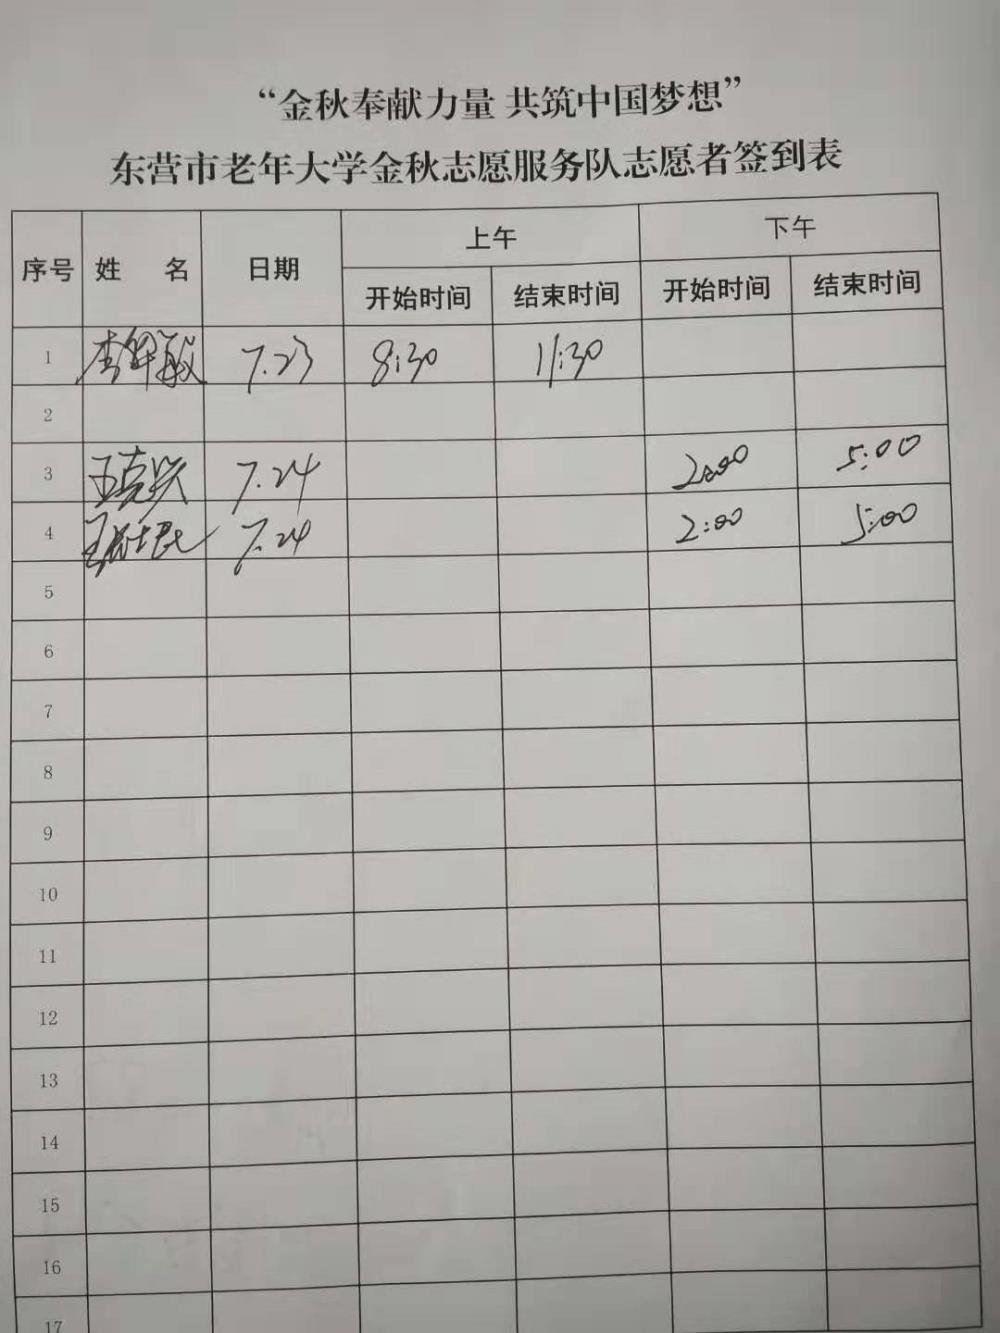 “金秋奉献力量 共筑中国梦想”
东营市老年大学金秋志愿服务队志愿者签到表
序号 姓 名 日期 上午 下午
开始时间 结束时间 开始时间 结束时间
1 7.23 8:30 11:30
2
3 王克兴 7.24 2:00 5:00
4 7.24 2:00 5:00
5
6
7
8
9
10
11
12
13
14
15
16
17